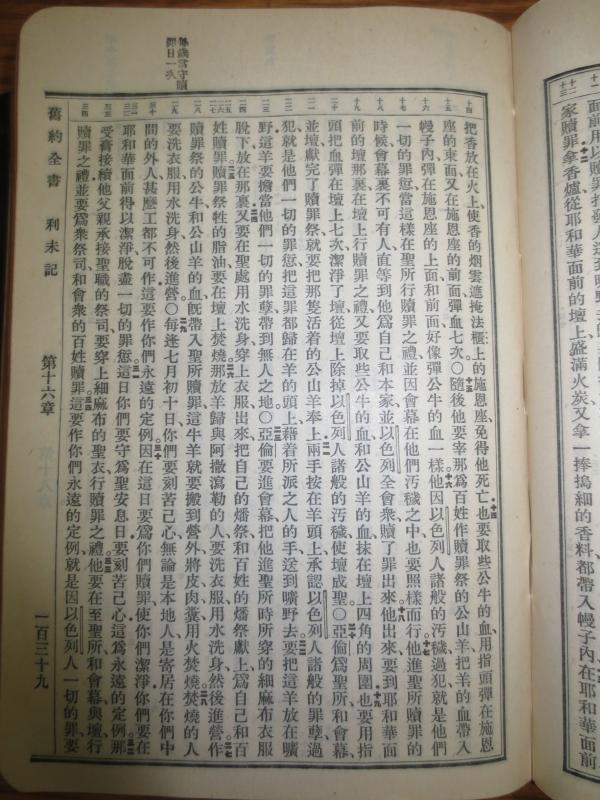 家贖罪拿香爐從耶和華面前的壇上盛滿火炭又拿一捧搗細的香料都帶入幔子內在耶和華面前
把香放在火上、使香的烟雲遮掩法櫃上的施恩座、免得他死亡。也要取些公牛的血、用指頭彈在施恩
座的東面又在施恩座的前面彈血七次〇隨後他要宰那爲百姓作贖罪祭的公山羊、把羊的血帶入
幔子內彈在施恩座的上面和前面好像彈公牛的血一樣。他因以色列人諸般的汚穢過犯、就是他們
一切的罪愆當這樣在聖所行贖罪之禮並因會幕在他們汚穢之中也要照樣而行。他進聖所贖罪的
時候會幕裏不可有人、直等到他爲自己和本家、並以色列全會衆贖了罪出來。他出來要到耶和華面
前的壇那裏、在壇上行贖罪之禮又要取些公牛的血和公山羊的血、抹在壇上四角的周圍。也要用指
頭把血彈在壇上七次、潔淨了壇、從壇上除掉以色列人諸般的汚穢使壇成聖〇亞倫爲聖所和會幕、
並壇獻完了贖罪祭就要把那隻活着的公山羊奉上。兩手按在羊頭上、承認以色列人諸般的罪孽過
犯、就是他們一切的罪愆把這罪都歸在羊的頭上、藉着所派之人的手、送到曠野去。要把這羊放在曠
野、這羊要擔當他們一切的罪孽、帶到無人之地〇亞倫要進會幕把他進聖所時所穿的細麻布衣服
脫下、放在那裏又要在聖處用水洗身、穿上衣服出來、把自己的燔祭和百姓的燔祭獻上、爲自己和百
姓贖罪。贖罪祭牲的脂油要在壇上焚燒。那放羊歸與阿撒瀉勒的人要洗衣服、用水洗身、然後進營。作
贖罪祭的公牛和公山羊的血旣帶入聖所贖罪這牛羊就要搬到營外、將皮肉糞用火焚燒。焚燒的人
要洗衣服、用水洗身然後進營〇每逢七月初十日、你們要刻苦己心、無論是本地人、是寄居在你們中
間的外人、甚麼工都不可作這要作你們永遠的定例。因在這日要爲你們贖罪、使你們潔淨。你們要在
耶和華面前得以潔淨、脫盡一切的罪愆。這日你們要守爲聖安息日、要刻苦己心這爲永遠的定例。那
受膏接續他父親承接聖職的祭司、要穿上細麻布的聖衣、行贖罪之禮。他要在至聖所和會幕與壇行
贖罪之禮、並要爲衆祭司和會衆的百姓贖罪。這要作你們永遠的定例、就是因以色列人一切的罪、要
舊約全書 利未記 第十六章 一百三十九